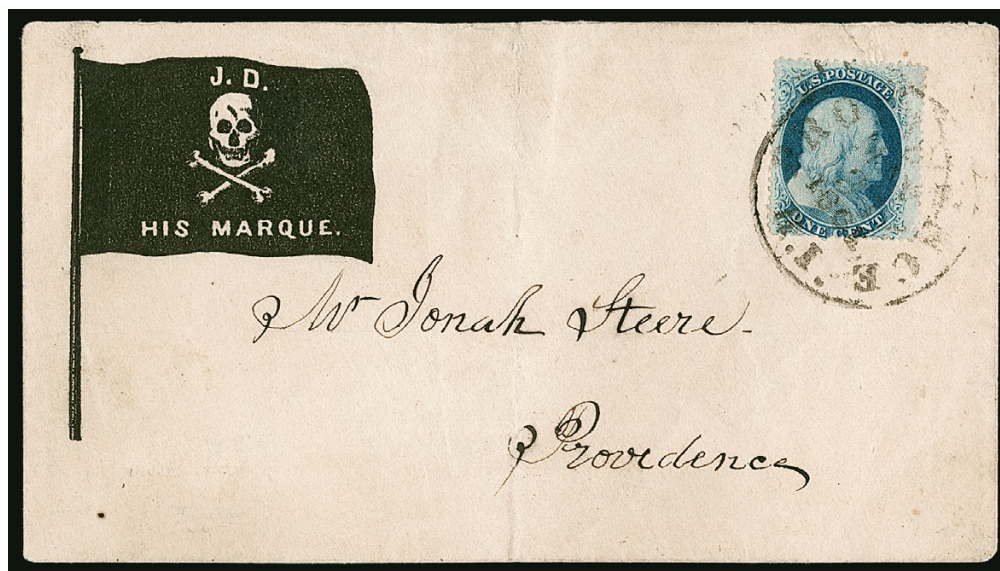 J. D.
HIS MARQUE.
U.S. POSTAGE
ONE CENT
Mr Jonah Steere
Providence